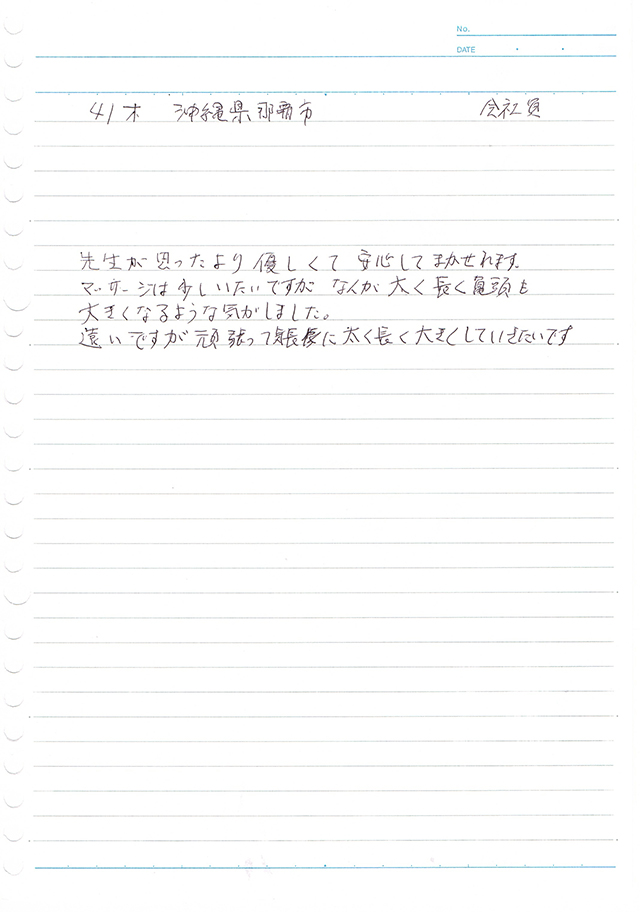 No.
DATE
41才 沖縄県那覇市 会社員
先生が思ったより優しくて 安心してまかせれます。
マッサージは少しいたいですが なんか 太く長く亀頭も
大きくなるような気がしました。
遠いですが 頑張って 太く長く大きくしていきたいです